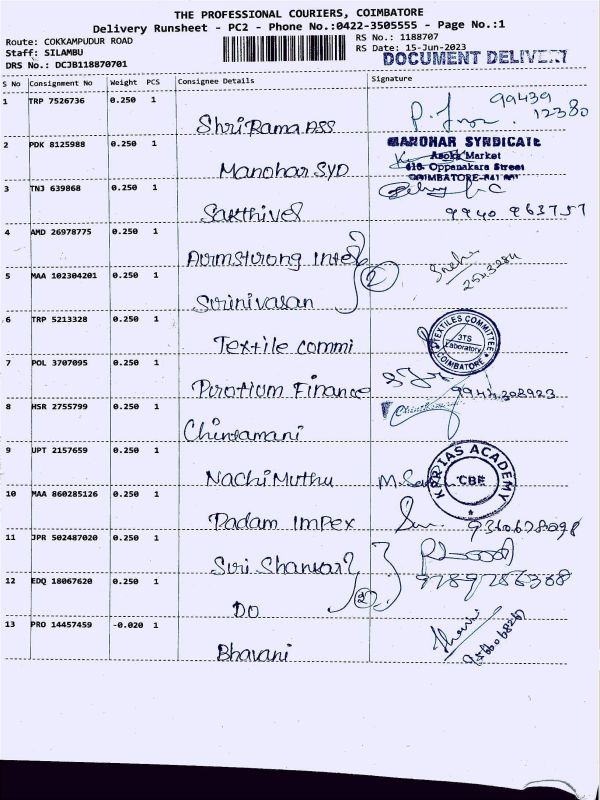 THE PROFESSIONAL COURIERS, COIMBATORE
Delivery Runsheet - PC2 - Phone No.:0422-3505555 - Page No.:1
Route: COKKAMPUDUR ROAD
Staff: SILAMBU
DRS No.: DCJB118870701
RS No.: 1188707
RS Date: 15-Jun-2023
DOCUMENT DELIVERY
S No Consignment No Weight PCS Consignee Details Signature
1 TRP 7526736 0.250 1
99439
12380
Shri Rama ASS
2 PDK 8125988 0.250 1
MANOHAR SYNDICATE
Asoka Market
Oppanakara Street
COIMBATORE
Manohar SYD
3 TNJ 639868 0.250 1
Sakthivel
9940 963757
4 AMD 26978775 0.250 1
Armstrong Inte
2
5 MAA 102304201 0.250 1
Srinivasan
6 TRP 5213328 0.250 1
TEXTILES COMMITTEE
3TS
Laboratory
COIMBATORE
Textile commi
7 POL 3707095 0.250 1
Pirotium Finance
8 HSR 2755799 0.250 1
Chintamani
9 UPT 2157659 0.250 1
IAS ACADEMY
CBE
Nachi Muthu
10 MAA 860285126 0.250 1
Padam Impex
11 JPR 502487020 0.250 1
Sri Shankar
12 EDQ 18067620 0.250 1
2
DO
13 PRO 14457459 -0.020 1
Bhavani